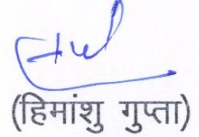 (हिमांशु गुप्ता)